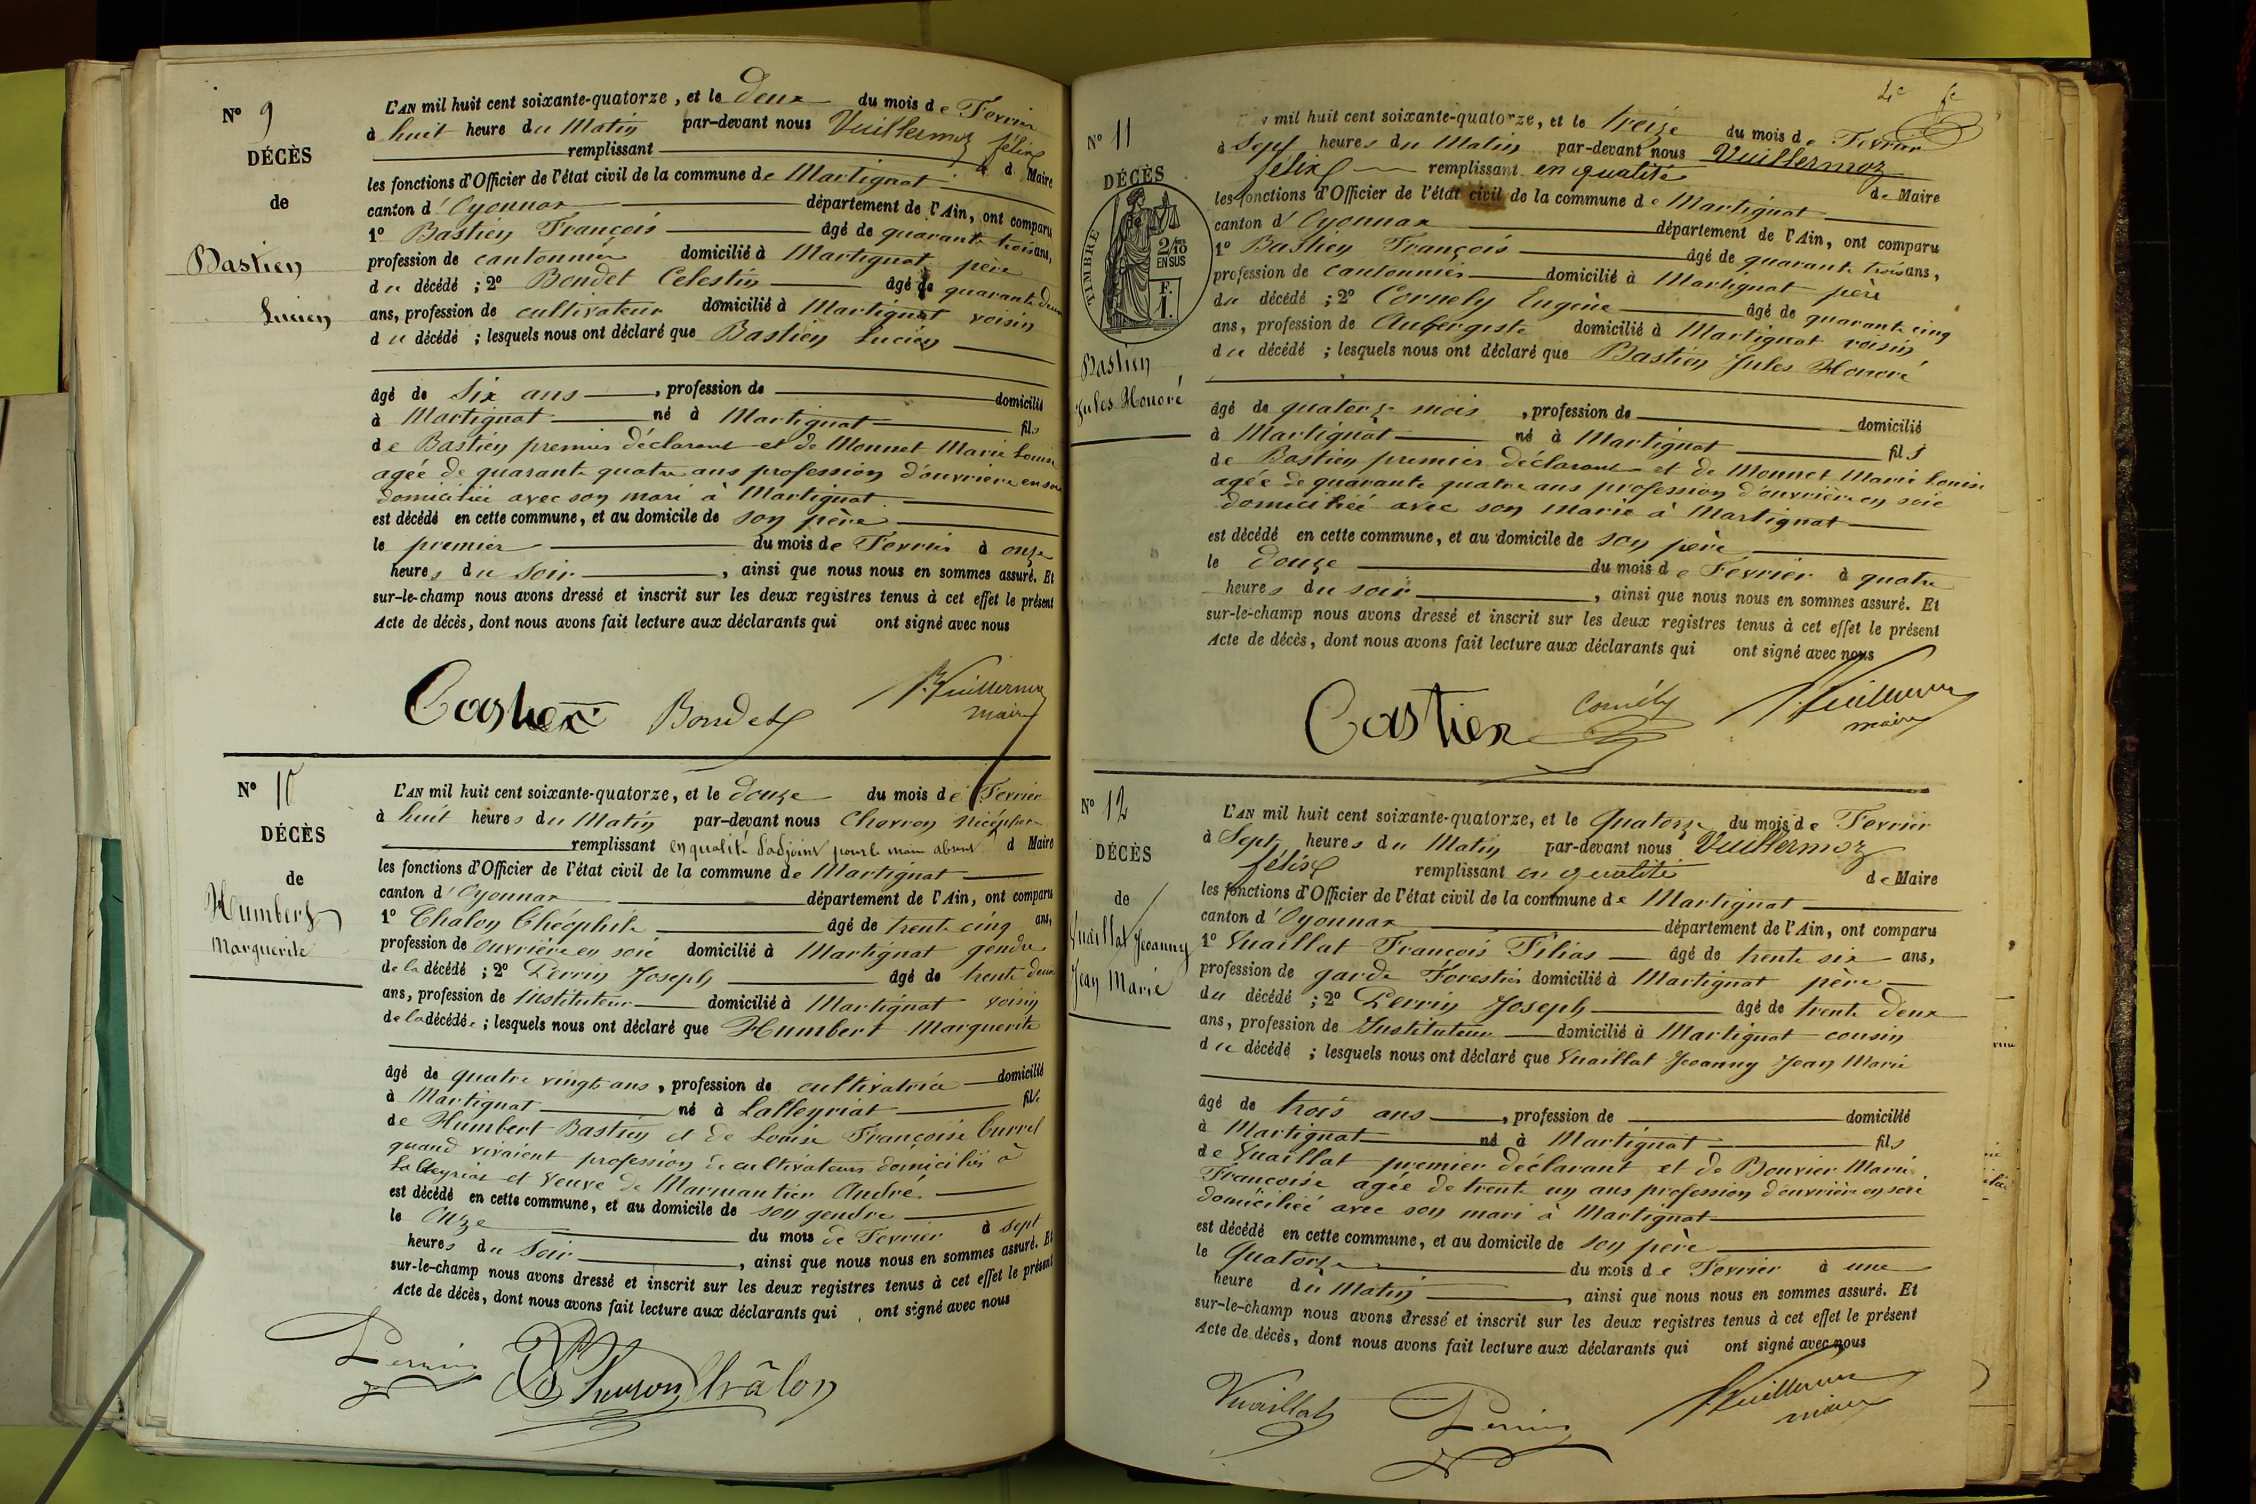 N° 9
DÉCÈS
de
Bastien
Lucien
L'AN mil huit cent soixante-quatorze, et le deux du mois de Fevrier
à huit heure du Matin par-devant nous Vuillermoz félix
remplissant d Maire
les fonctions d'Officier de l'état civil de la commune de Martignat
canton d'Oyonnax département de l'Ain, ont comparu
1° Bastien François âgé de quarante trois ans,
profession de cantonnier domicilié à Martignat père
du décédé ; 2° Bondet Celestin âgé de quarante deux
ans, profession de cultivateur domicilié à Martignat voisin
du décédé ; lesquels nous ont déclaré que Bastien Lucien
âgé de Six ans, profession de domicilié
à Martignat né à Martignat fils
de Bastien premier déclarant et de Monnet Marie Louise
agée de quarante quatre ans profession d'ouvrière en soie
domiciliée avec son mari à Martignat
est décédé en cette commune, et au domicile de son père
le premier du mois de Fevrier à onze
heures du Soir, ainsi que nous nous en sommes assuré. Et
sur-le-champ nous avons dressé et inscrit sur les deux registres tenus à cet effet le présent
Acte de décès, dont nous avons fait lecture aux déclarants qui ont signé avec nous
Bastien Bondet Vuillermoz
maire
N° 10
DÉCÈS
de
Humbert
Marguerite
L'AN mil huit cent soixante-quatorze, et le douze du mois de Fevrier
à huit heures du Matin par-devant nous Chevron Nicéphore
remplissant en qualité d'adjoint pour le maire absent d Maire
les fonctions d'Officier de l'état civil de la commune de Martignat
canton d'Oyonnax département de l'Ain, ont comparu
1° Chalon Théophile âgé de trente cinq ans,
profession de ouvrière en soie domicilié à Martignat gendre
de la décédé ; 2° Perrin Joseph âgé de trente deux
ans, profession de Instituteur domicilié à Martignat voisin
de la décédée ; lesquels nous ont déclaré que Humbert Marguerite
âgé de quatre vingts ans, profession de cultivatrice domicilié
à Martignat né à Lalleyriat fille
de Humbert Bastien et de Louise Françoise Burrel
quand vivaient profession de cultivateurs domiciliés à
Lalleyriat et Veuve de Marmantier André
est décédé en cette commune, et au domicile de son gendre
le Onze du mois de Fevrier à sept
heures du Soir, ainsi que nous nous en sommes assuré. Et
sur-le-champ nous avons dressé et inscrit sur les deux registres tenus à cet effet le présent
Acte de décès, dont nous avons fait lecture aux déclarants qui ont signé avec nous
Perrin Chevron Châlon
N° 11
DÉCÈS
TIMBRE
2/10
EN SUS
F.
1.
Bastien
Jules Honoré
mil huit cent soixante-quatorze, et le treize du mois de Fevrier
à Sept heures du Matin par-devant nous Vuillermoz
félix remplissant en qualité de Maire
les fonctions d'Officier de l'état civil de la commune de Martignat
canton d'Oyonnax département de l'Ain, ont comparu
1° Bastien François âgé de quarante trois ans,
profession de cantonnier domicilié à Martignat père
du décédé ; 2° Cornely Eugène âgé de quarante cinq
ans, profession de Aubergiste domicilié à Martignat voisin
du décédé ; lesquels nous ont déclaré que Bastien Jules Honoré
âgé de quatorze mois, profession de domicilié
à Martignat né à Martignat fils
de Bastien premier déclarant et de Monnet Marie Louise
agée de quarante quatre ans profession d'ouvrière en soie
domiciliée avec son marie à Martignat
est décédé en cette commune, et au domicile de son père
le Douze du mois de Février à quatre
heures du soir, ainsi que nous nous en sommes assuré. Et
sur-le-champ nous avons dressé et inscrit sur les deux registres tenus à cet effet le présent
Acte de décès, dont nous avons fait lecture aux déclarants qui ont signé avec nous
Bastien Cornély Vuillermoz
maire
N° 12
DÉCÈS
de
Vuaillat Jeoanny
Jean Marie
L'AN mil huit cent soixante-quatorze, et le Quatorze du mois de Fevrier
à Sept heures du Matin par-devant nous Vuillermoz
félix remplissant en qualité de Maire
les fonctions d'Officier de l'état civil de la commune de Martignat
canton d'Oyonnax département de l'Ain, ont comparu
1° Vuaillat François Filias âgé de trente six ans,
profession de garde Forestier domicilié à Martignat père
du décédé ; 2° Perrin Joseph âgé de trente deux
ans, profession de Instituteur domicilié à Martignat cousin
du décédé ; lesquels nous ont déclaré que Vuaillat Jeoanny Jean Marie
âgé de trois ans, profession de domicilié
à Martignat né à Martignat fils
de Vuaillat premier déclarant et de Bouvier Marie
Francoise agée de trente un ans profession d'ouvrière en soie
domiciliée avec son mari à Martignat
est décédé en cette commune, et au domicile de son père
le Quatorze du mois de Fevrier à une
heure du Matin, ainsi que nous nous en sommes assuré. Et
sur-le-champ nous avons dressé et inscrit sur les deux registres tenus à cet effet le présent
Acte de décès, dont nous avons fait lecture aux déclarants qui ont signé avec nous
Vuaillat Perrin Vuillermoz
maire